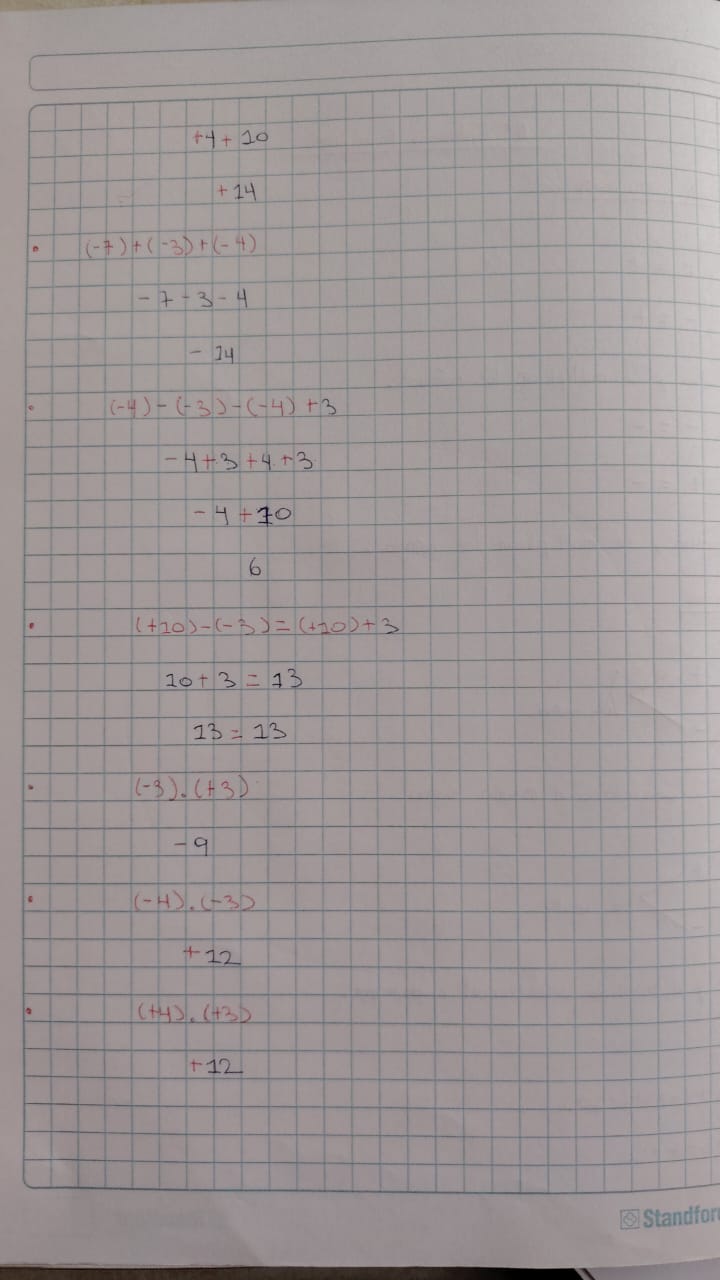 +4+10
+14
(-7)+(-3)+(-4)
-7-3-4
-14
(-4)-(-3)-(-4)+3
-4+3+4+3
-4+10
6
(+10)-(-3)=(+10)+3
10+3=13
13=13
(-3).(+3)
-9
(-4).(-3)
+12
(+4).(+3)
+12